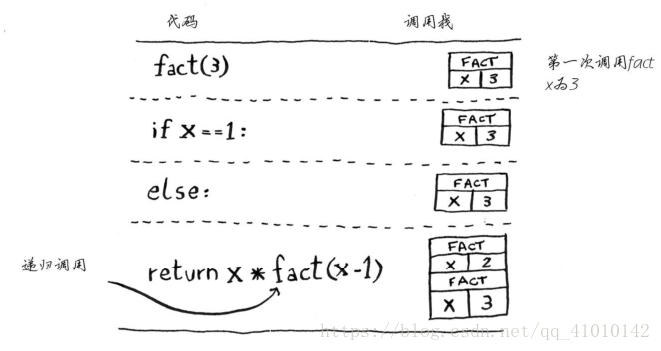 代码 调用栈
fact(3)
FACT
X 3
第一次调用fact
x为3
if x==1:
FACT
X 3
else:
FACT
X 3
递归调用
return x * fact(x-1)
FACT
X 2
FACT
X 3
https://blog.csdn.net/qq_41010142